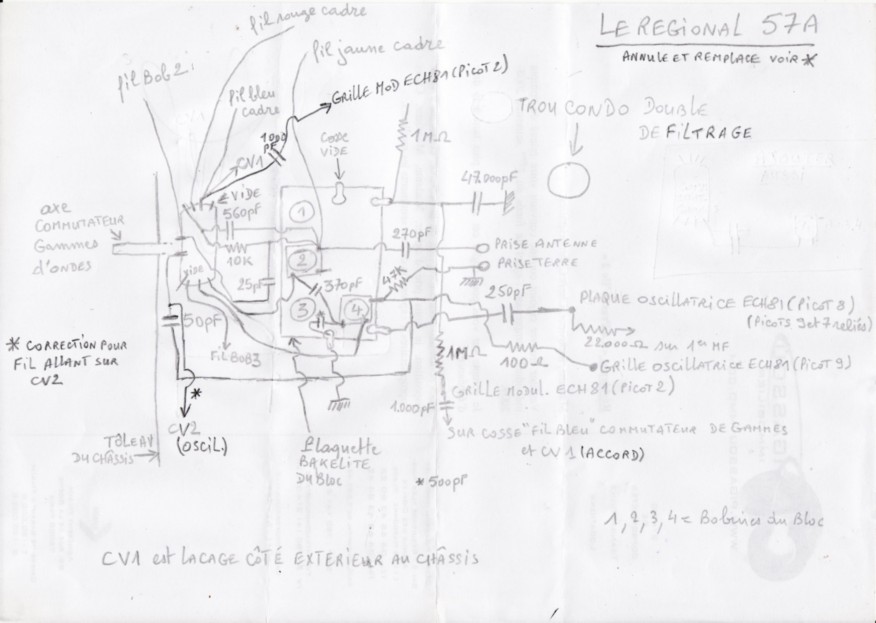 fil rouge cadre
LE REGIONAL 57A
ANNULE ET REMPLACE VOIR *
fil jaune cadre
fil Bob 2
fil bleu
cadre
GRILLE MOD ECH81 (PICOT 2)
TROU CONDO DOUBLE
DE FILTRAGE
1000
PF
COSSE
VIDE
1MΩ
CV1
VIDE
47.000pF
560pF
1
axe
COMMUTATEUR
Gammes
d'ONDES
10K
270pF
PRISE ANTENNE
PRISE TERRE
2
VIDE
25pF
370pF
47K
250pF
PLAQUE OSCILLATRICE ECH81 (PICOT 8)
(PICOTS 9 et 7 reliés)
3
4
50pF
22.000Ω sur 1er MF
* CORRECTION POUR
FIL ALLANT SUR
CV2
FIL BOB3
1MΩ
100Ω
GRILLE OSCILLATRICE ECH81 (PICOT 9)
GRILLE MODUL. ECH81 (PICOT 2)
*
1.000pF
CV2
(OSCIL.)
SUR COSSE "FIL BLEU" COMMUTATEUR DE GAMMES
et CV1 (ACCORD)
TÔLE AV
DU CHÂSSIS
Plaquette
BAKELITE
DU BLOC
* 500pF
1, 2, 3, 4 = Bobines du Bloc
CV1 est LA CAGE CÔTÉ EXTERIEUR AU CHÂSSIS